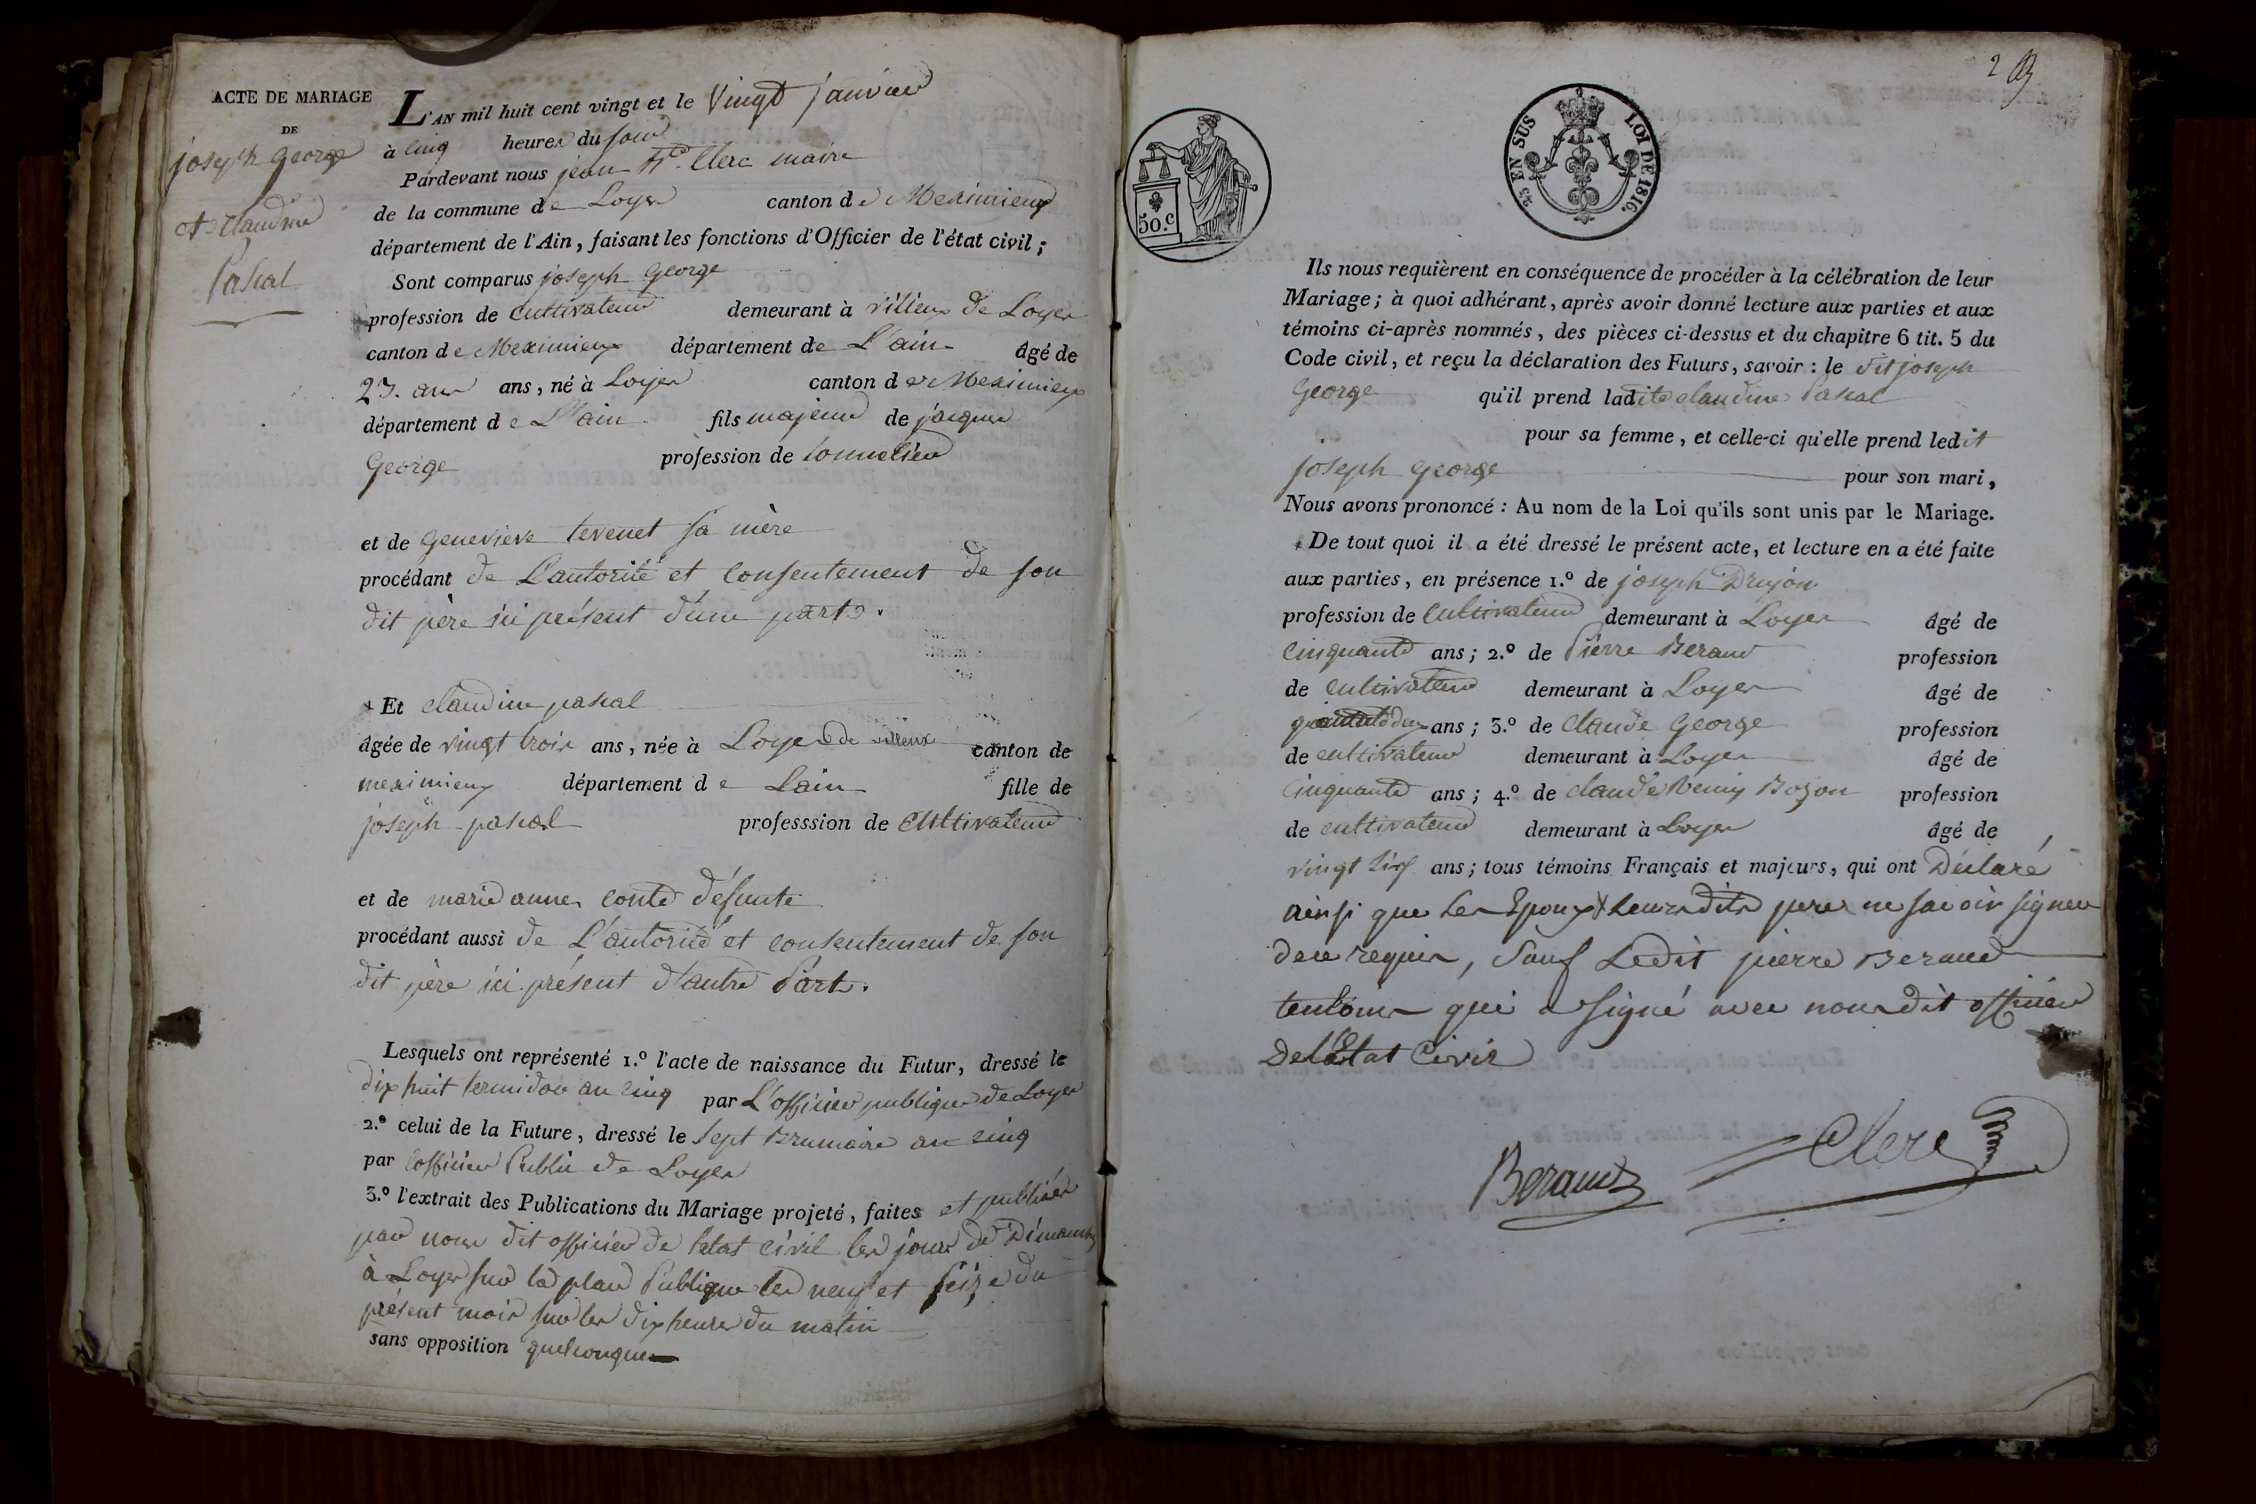 ACTE DE MARIAGE
DE
joseph george
et claudine
Pascal
L'AN mil huit cent vingt et le Vingt janvier
à cinq heures du soir
Pardevant nous jean Clerc maire
de la commune de Loyes canton de Meximieux
département de l'Ain, faisant les fonctions d'Officier de l'état civil;
Sont comparus joseph George
profession de cultivateur demeurant à villieux de Loyes
canton de Meximieux département de L'ain âgé de
23. ans ans, né à Loyes canton de Meximieux
département de L'ain fils majeur de jacques
George profession de tonnelier
et de genevieve tevenet sa mère
procédant de L'autorité et consentement de son
dit père ici présent d'une part.
Et claudine pascal
âgée de vingt trois ans, née à Loyes de villieux canton de
meximieux département de Lain fille de
joseph pascal professsion de cultivateur
et de marie anne conte défunte
procédant aussi de L'autorité et consentement de son
dit père ici présent d'autre Part.
Lesquels ont représenté 1.º l'acte de naissance du Futur, dressé le
dix huit termidor an cinq par L'officier publique de Loyes
2.º celui de la Future, dressé le sept Brumaire an cinq
par l'officier Public de Loyes
3.º l'extrait des Publications du Mariage projeté, faites et publiées
par nous dit officier de letat civil les jours de Dimanche
à Loyes sur la place Publique les neuf et seize du
présent mois sur les dix heures du matin
sans opposition quelconque
2
50.c
25 EN SUS
LOI DE 1816.
Ils nous requièrent en conséquence de procéder à la célébration de leur
Mariage; à quoi adhérant, après avoir donné lecture aux parties et aux
témoins ci-après nommés, des pièces ci-dessus et du chapitre 6 tit. 5 du
Code civil, et reçu la déclaration des Futurs, savoir : le dit joseph
George qu'il prend ladite claudine Pascal
pour sa femme, et celle-ci qu'elle prend ledit
joseph george pour son mari,
Nous avons prononcé : Au nom de la Loi qu'ils sont unis par le Mariage.
De tout quoi il a été dressé le présent acte, et lecture en a été faite
aux parties, en présence 1.º de joseph Drujon
profession de cultivateur demeurant à Loyes âgé de
cinquante ans; 2.º de Pierre Beraud profession
de cultivateur demeurant à Loyes âgé de
ans; 3.º de claude George profession
de cultivateur demeurant à Loyes âgé de
cinquante ans; 4.º de claude Remy Bozon profession
de cultivateur demeurant à Loyes âgé de
vingt six ans; tous témoins Français et majeurs, qui ont Déclaré
ainsi que les Epoux & leurs dits peres ne savoir signer
de ce requis, Sauf Ledit pierre Beraud
temoins qui a signé avec nous dit officier
De l'Etat Civil
Beraud
Clerc